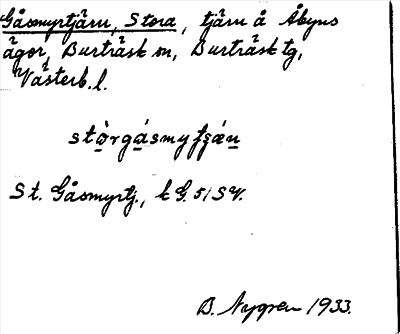 Gåsmyrtjärn, Stora, tjärn å Åbyns
ägor, Burträsk sn, Burträsk tg,
Västerb. l.
stòrgásmyrtjæn
St. Gåsmyrtj., k G. 51 SV.
B. Nygren 1933.